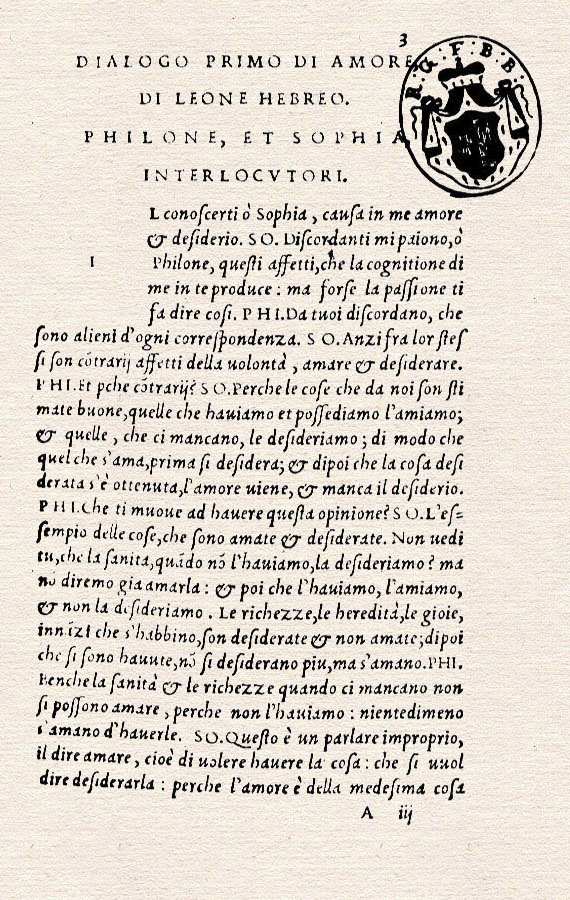 3
DIALOGO PRIMO DI AMORE
DI LEONE HEBREO.
R. G. F. B. B.
PHILONE, ET SOPHIA
INTERLOCVTORI.
L conoſcerti ò Sophia, cauſa in me amore
& deſiderio. SO. Diſcordanti mi paiono, ò
I Philone, queſti affetti, che la cognitione di
me in te produce: ma forſe la paſſione ti
fa dire coſi. PHI. Da tuoi diſcordano, che
ſono alieni d'ogni correſpondenza. SO. Anzi fra lor ſteſ
ſi ſon cõtrarij affetti della uolontà, amare & deſiderare.
PHI. Et pche cõtrarij? SO. Perche le coſe che da noi ſon ſti
mate buone, quelle che hauiamo et poſſediamo l'amiamo;
& quelle, che ci mancano, le deſideriamo; di modo che
quel che s'ama, prima ſi deſidera; & dipoi che la coſa deſi
derata s'è ottenuta, l'amore uiene, & manca il deſiderio.
PHI. Che ti muoue ad hauere queſta opinione? SO. L'eſ=
ſempio delle coſe, che ſono amate & deſiderate. Non uedi
tu, che la ſanità, quãdo nõ l'hauiamo, la deſideriamo? ma
nõ diremo gia amarla: & poi che l'hauiamo, l'amiamo,
& non la deſideriamo. Le richezze, le heredità, le gioie,
innãzi che s'habbino, ſon deſiderate & non amate; dipoi
che ſi ſono hauute, nõ ſi deſiderano piu, ma s'amano. PHI.
Benche la ſanità & le richezze quando ci mancano non
ſi poſſono amare, perche non l'hauiamo: nientedimeno
s'amano d'hauerle. SO. Queſto è un parlare improprio,
il dire amare, cioè di uolere hauere la coſa: che ſi uuol
dire deſiderarla: perche l'amore è della medeſima coſa
A iij